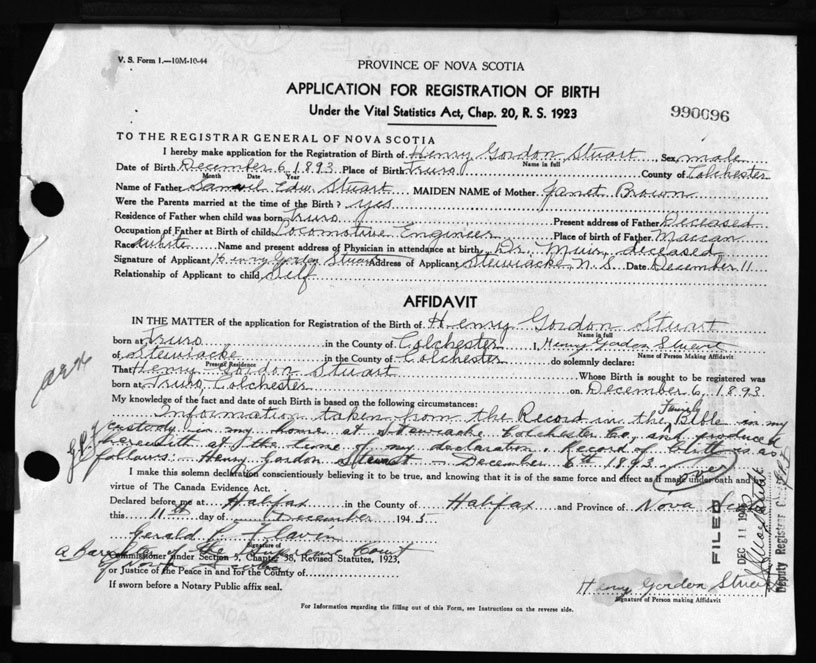 V. S. Form 1.—10M-10-44
PROVINCE OF NOVA SCOTIA
APPLICATION FOR REGISTRATION OF BIRTH
Under the Vital Statistics Act, Chap. 20, R. S. 1923
990096
TO THE REGISTRAR GENERAL OF NOVA SCOTIA
I hereby make application for the Registration of Birth of Henry Gordon Stuart Sex male
Name in full
Date of Birth December 6 1893 Place of Birth Truro County of Colchester
Month Date Year
Name of Father Samuel Edw Stuart MAIDEN NAME of Mother Janet Brown
Were the Parents married at the time of the Birth? yes
Residence of Father when child was born Truro Present address of Father Deceased
Occupation of Father at Birth of child Locomotive Engineer Place of birth of Father Maccan
Race white Name and present address of Physician in attendance at birth Dr. Muir, deceased
Signature of Applicant Henry Gordon Stuart Address of Applicant Stewiacke, N. S. Date December 11
Relationship of Applicant to child Self
AFFIDAVIT
IN THE MATTER of the application for Registration of the Birth of Henry Gordon Stuart
Name in full
born at Truro in the County of Colchester I, Henry Gordon Stuart
Name of Person Making Affidavit
of Stewiacke in the County of Colchester do solemnly declare:
Present Residence
That Henry Gordon Stuart Whose Birth is sought to be registered was
born at Truro, Colchester on December 6, 1893
My knowledge of the fact and date of such Birth is based on the following circumstances:
Family
Information taken from the Record in the Bible in my
custody in my home at Stewiacke Colchester Co, and produced
herewith at the time of my declaration. Record of birth is as
follows:- Henry Gordon Stewart - December 6th 1893 (over)
I make this solemn declaration conscientiously believing it to be true, and knowing that it is of the same force and effect as if made under oath and by
virtue of The Canada Evidence Act.
Declared before me at Halifax in the County of Halifax and Province of Nova Scotia
this 11th day of December 1945
Gerald P. Flavin
Signature of
A Barrister of the Supreme Court
of Nova Scotia
Commissioner under Section 5, Chapter 38, Revised Statutes, 1923,
or Justice of the Peace in and for the County of
If sworn before a Notary Public affix seal.
FILED
DEC 11 1945
Deputy Registrar
Henry Gordon Stuart
Signature of Person making Affidavit
For Information regarding the filling out of this Form, see Instructions on the reverse side.